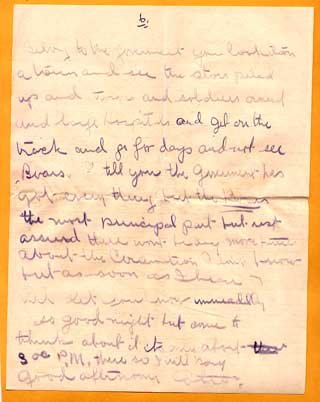 6.
to the government you look into
a town and see the stores piled
up and town and soldiers around
and large hospitals and get on the
track and go for days and not see
Boers. I tell you the Government has
got every thing but the Boers
the most principal part but rest
around there wont be any more
about the I dont know
but as soon as I hear I
will let you know immeadtly
so good night but come to
think about it it is about
3 oc P.M. there so I will say
good afternoon